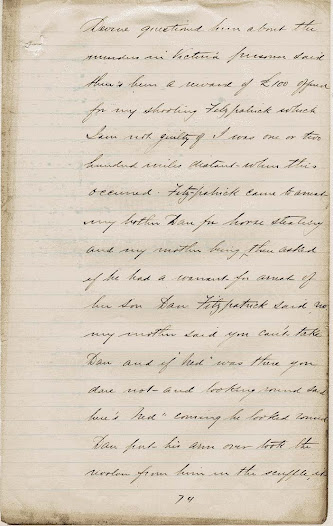 Devine questioned him about the
murders in Victoria prisoner said
there's been a reward of £100 offered
for my shooting Fitzpatrick which
I am not guilty of I was one or two
hundred miles distant when this
occurred. Fitzpatrick came to arrest
my brother Dan for horse stealing
and my mother being then asked
if he had a warrant for arrest of
her son Dan Fitzpatrick said no
my mother said you can't take
Dan and if "Ned" was there you
dare not and looking round said
here's "Ned" coming he looked round
Dan put his arm over took the
revolver from him in the scuffle
74